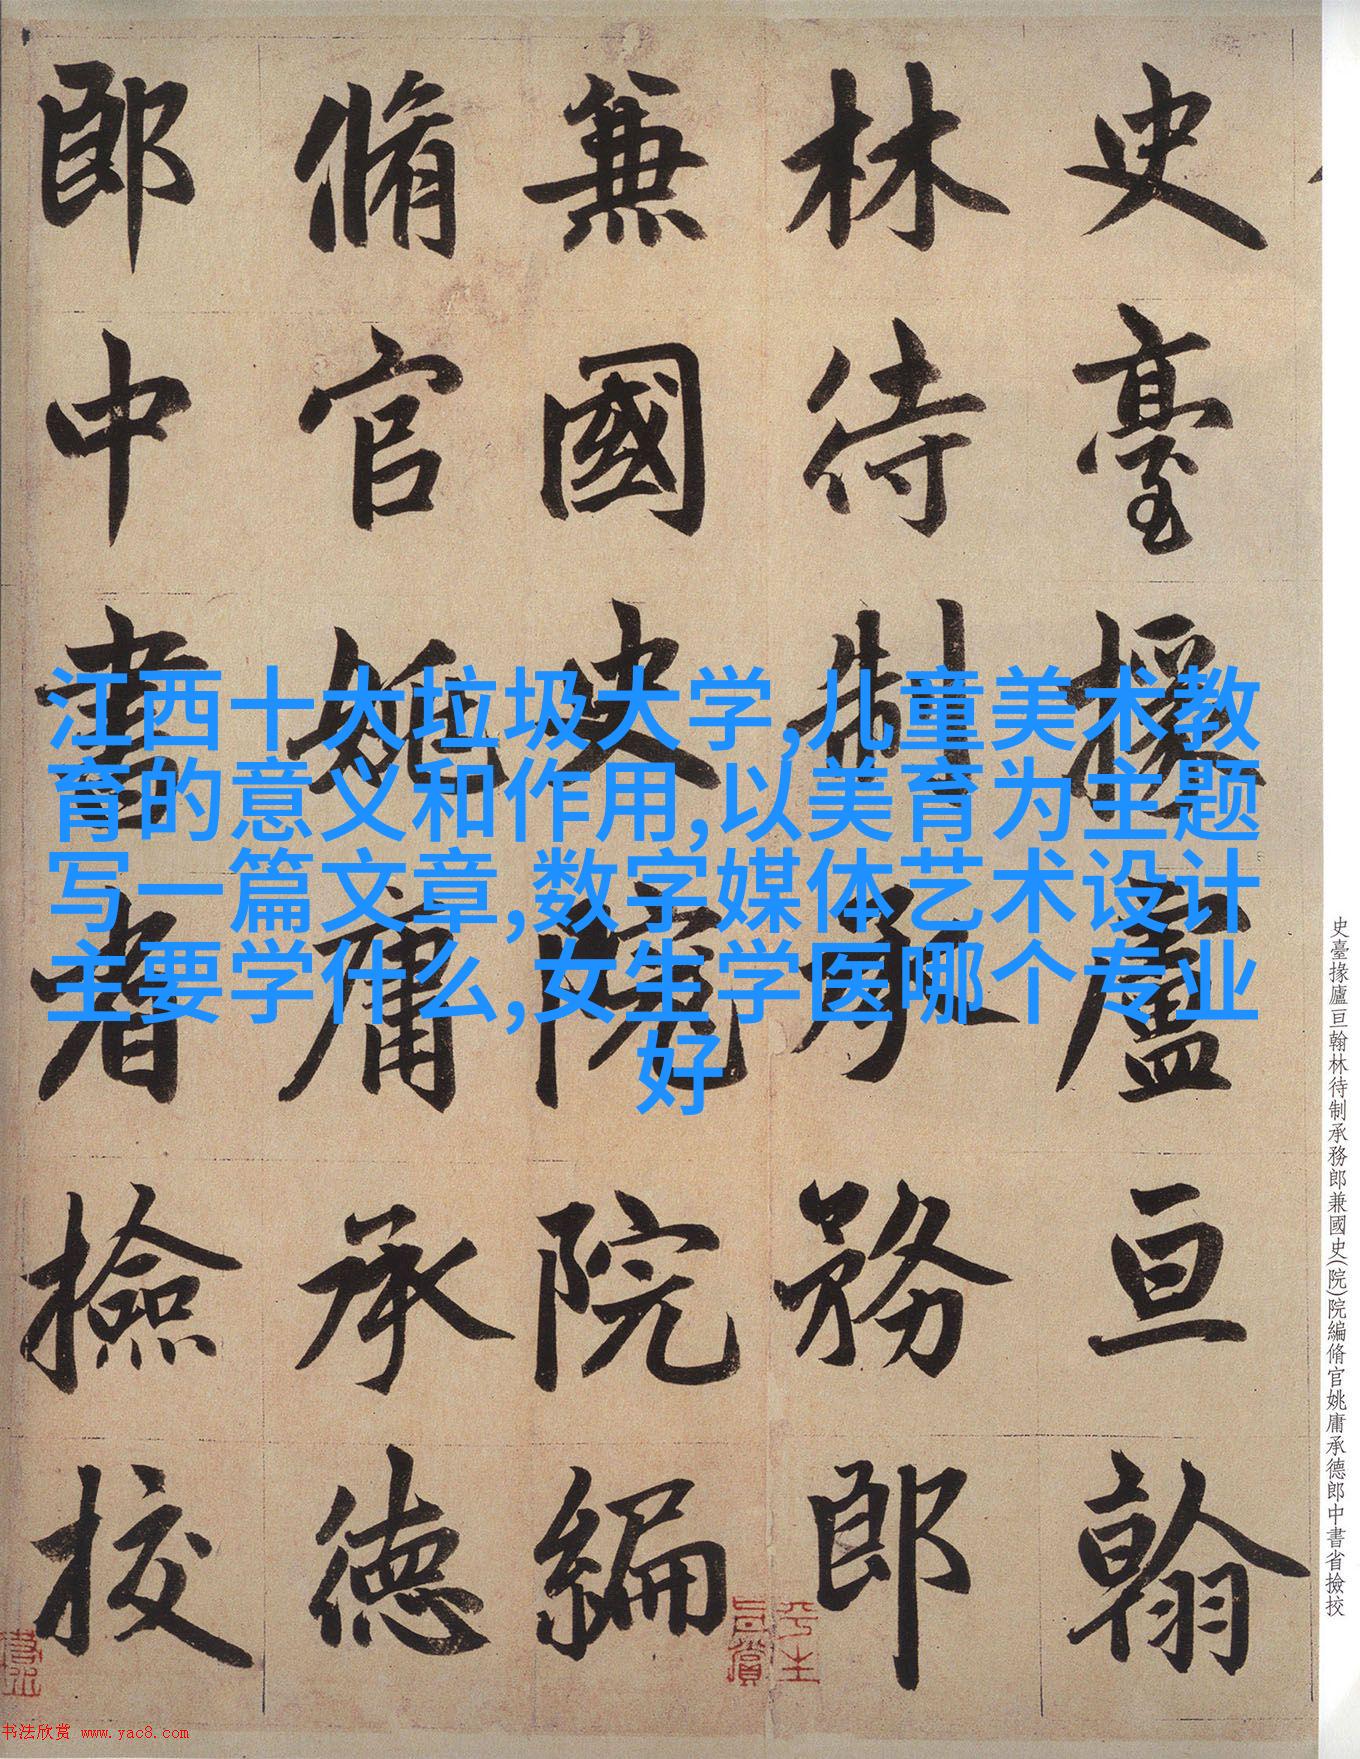 史臺掾廬亘翰
林待制承務郎
兼國史院院編
脩官姚庸承德
郎中書省撿挍
江西十大垃圾大学,儿童美术教
育的意义和作用,以美育为主题
写一篇文章,数字媒体艺术设计
主要学什么,女生学医哪个专业
好
史臺掾廬亘翰林待制承務郎兼國史(院)院編脩官姚庸承德郎中書省撿挍
书法欣赏 www.yac8.com